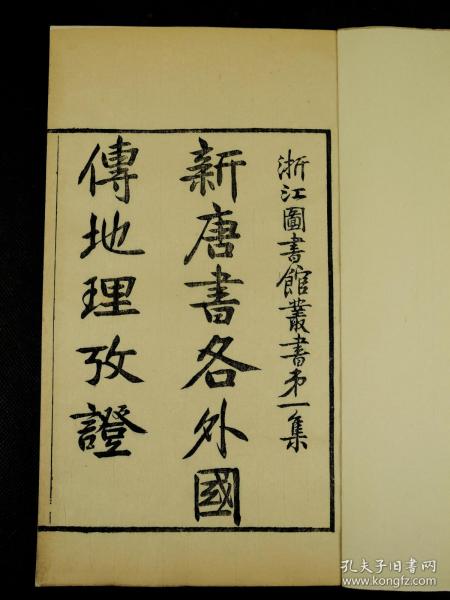 浙江圖書館叢書第一集
新唐書各外國
傳地理攷證
孔夫子旧书网
www.kongfz.com